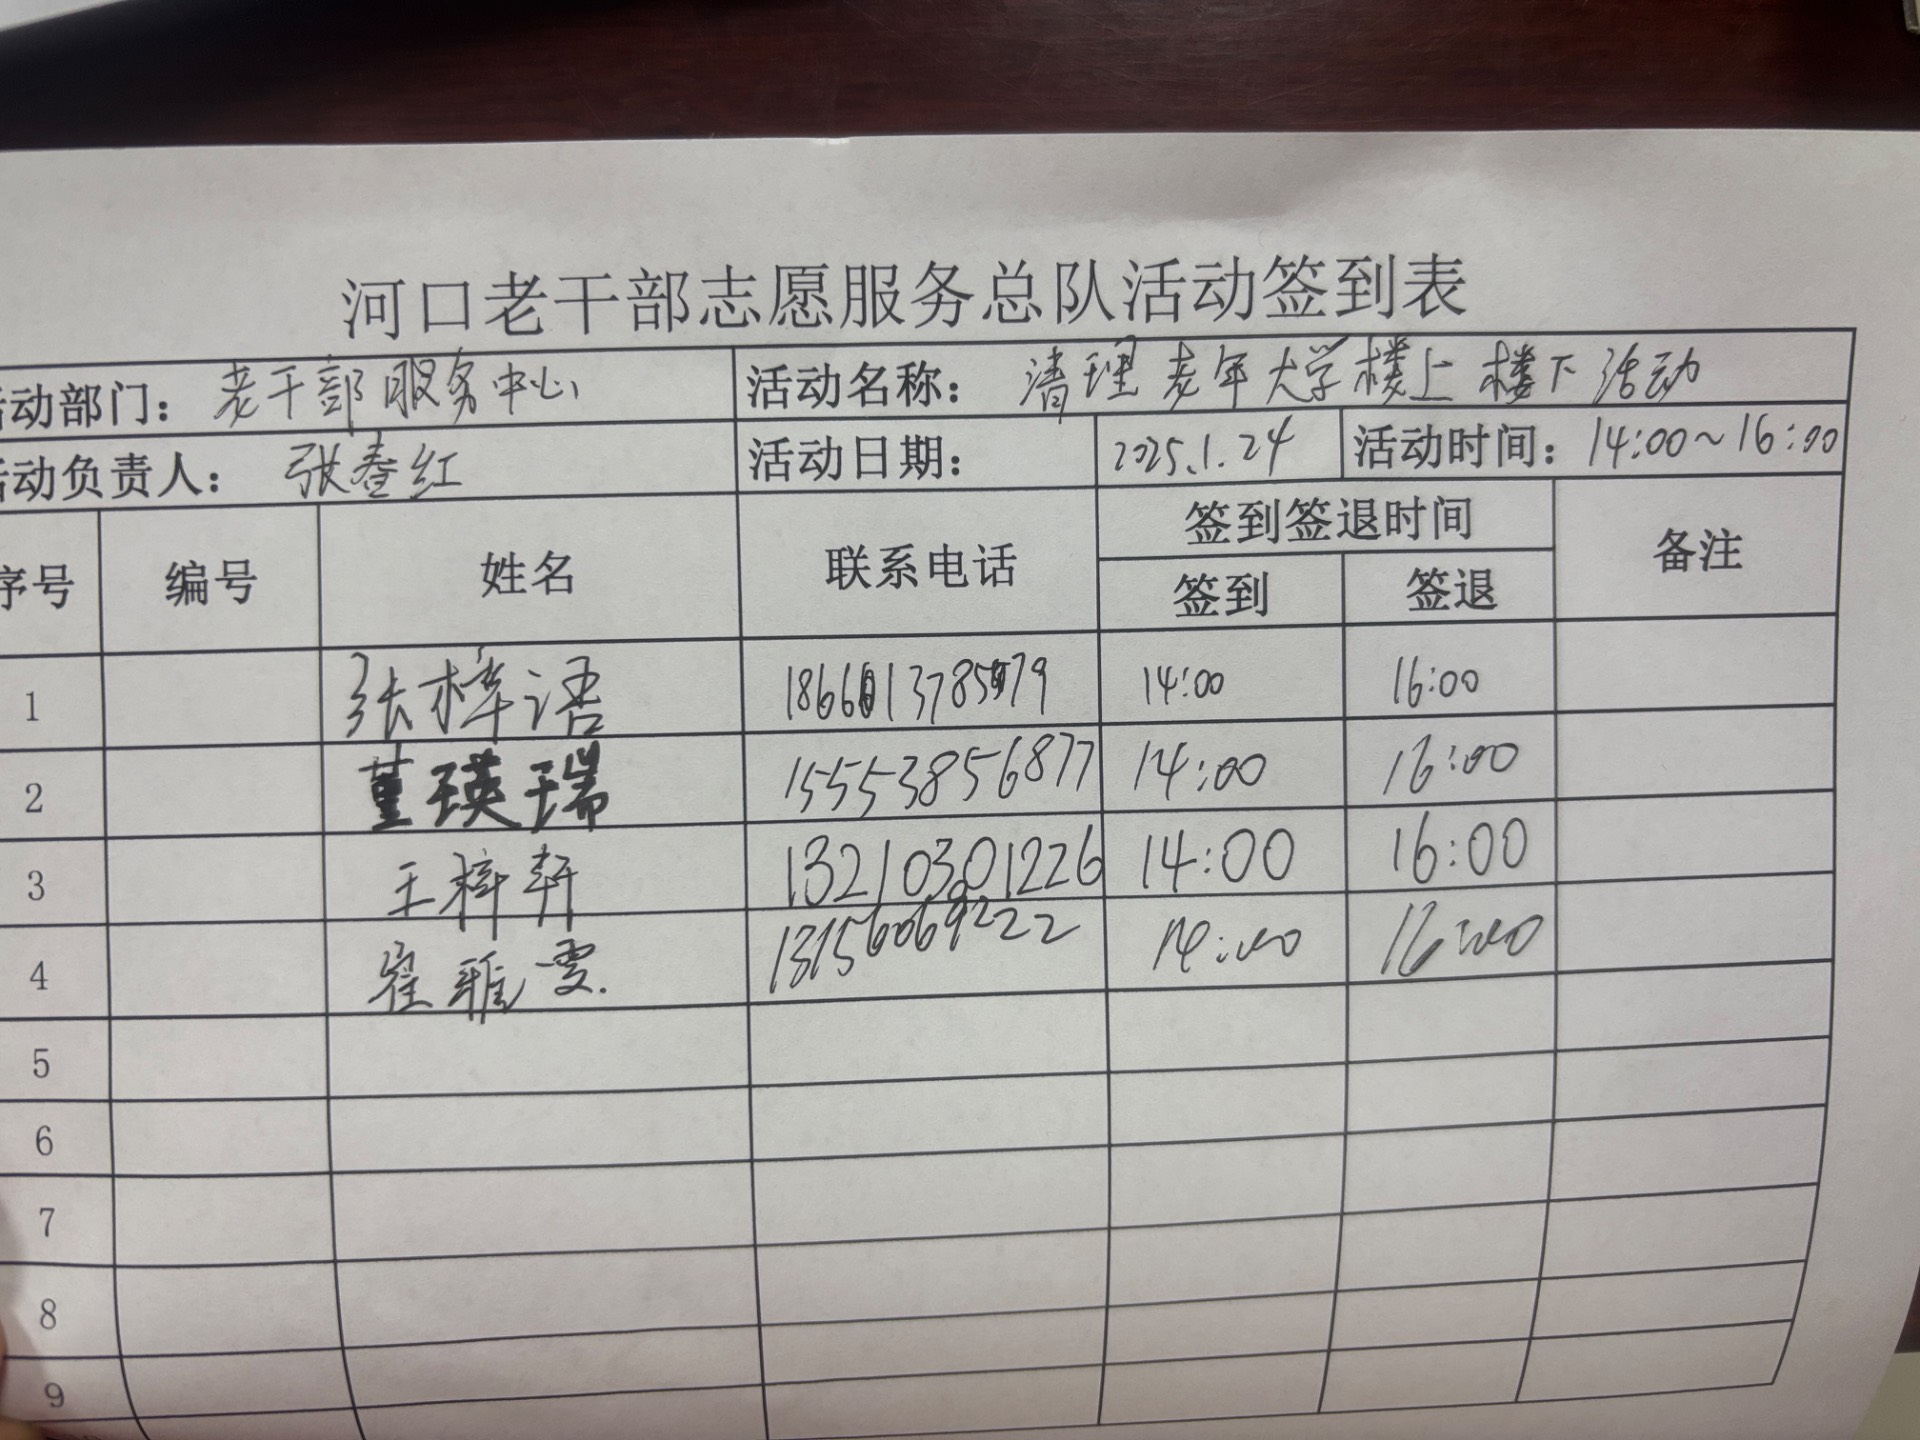 河口老干部志愿服务总队活动签到表
活动部门：老干部服务中心 活动名称：清理老年大学楼上楼下活动
活动负责人：张春红 活动日期：2025.1.24 活动时间：14:00~16:00
序号 编号 姓名 联系电话 签到签退时间 备注
签到 签退
1 张梓语 14:00 16:00
2 董瑛瑞 15553856877 14:00 16:00
3 王梓轩 13210301226 14:00 16:00
4 崔雅雯. 13156069222 14:00 16:00
5
6
7
8
9